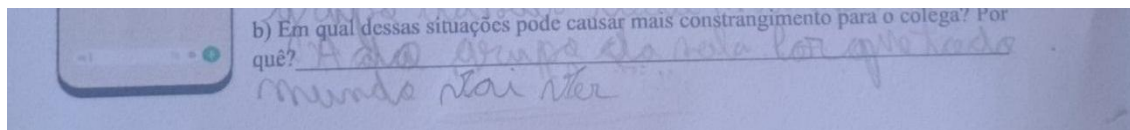 b) Em qual dessas situações pode causar mais constrangimento para o colega? Por
quê? A do grupo da sala por que todo
mundo vai ver